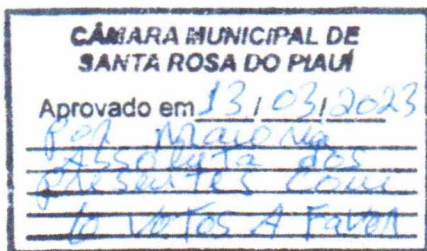 CÂMARA MUNICIPAL DE
SANTA ROSA DO PIAUÍ
Aprovado em 13 / 03 / 2023
Por Maioria
Absoluta dos
presentes com
votos A Favor